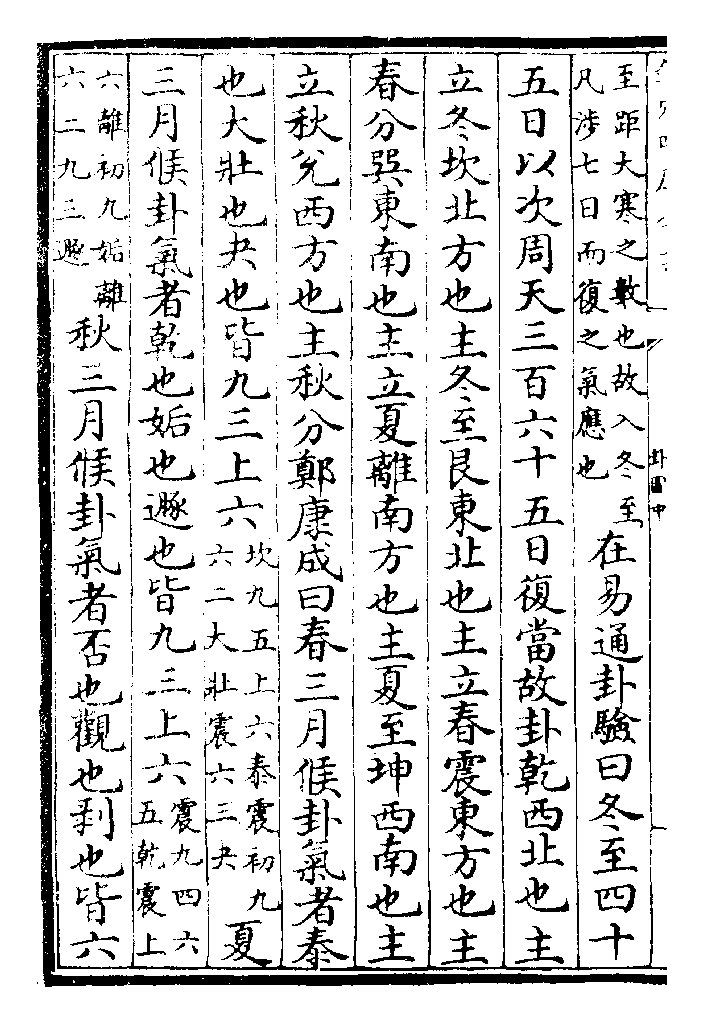 至距大寒之數也故入冬至
凡涉七日而復之氣應也
在易通卦驗曰冬至四十
五日以次周天三百六十五日復當故卦乾西北也主
立冬坎北方也主冬至艮東北也主立春震東方也主
春分巽東南也主立夏離南方也主夏至坤西南也主
立秋兌西方也主秋分鄭康成曰春三月候卦氣者泰
也大壯也夬也皆九三上六
坎九五上六泰震初九
六二大壯震六三夬
夏
三月候卦氣者乾也姤也遯也皆九三上六
震九四六
五乾震上
六離初九姤離
六二九三遯
秋三月候卦氣者否也觀也剥也皆六
卦圖中